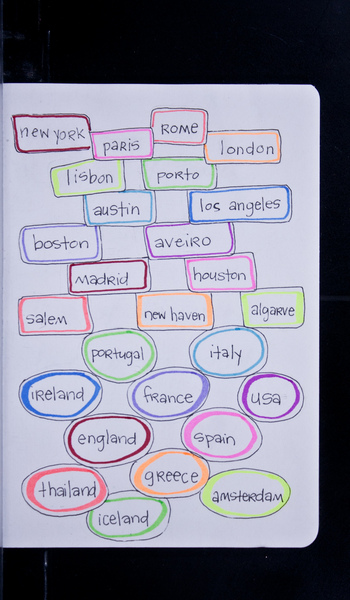 new york
paris
Rome
london
lisbon
porto
austin
los angeles
boston
aveiro
Madrid
houston
salem
new haven
algarve
portugal
italy
ireland
france
usa
england
spain
thailand
greece
amsterdam
iceland